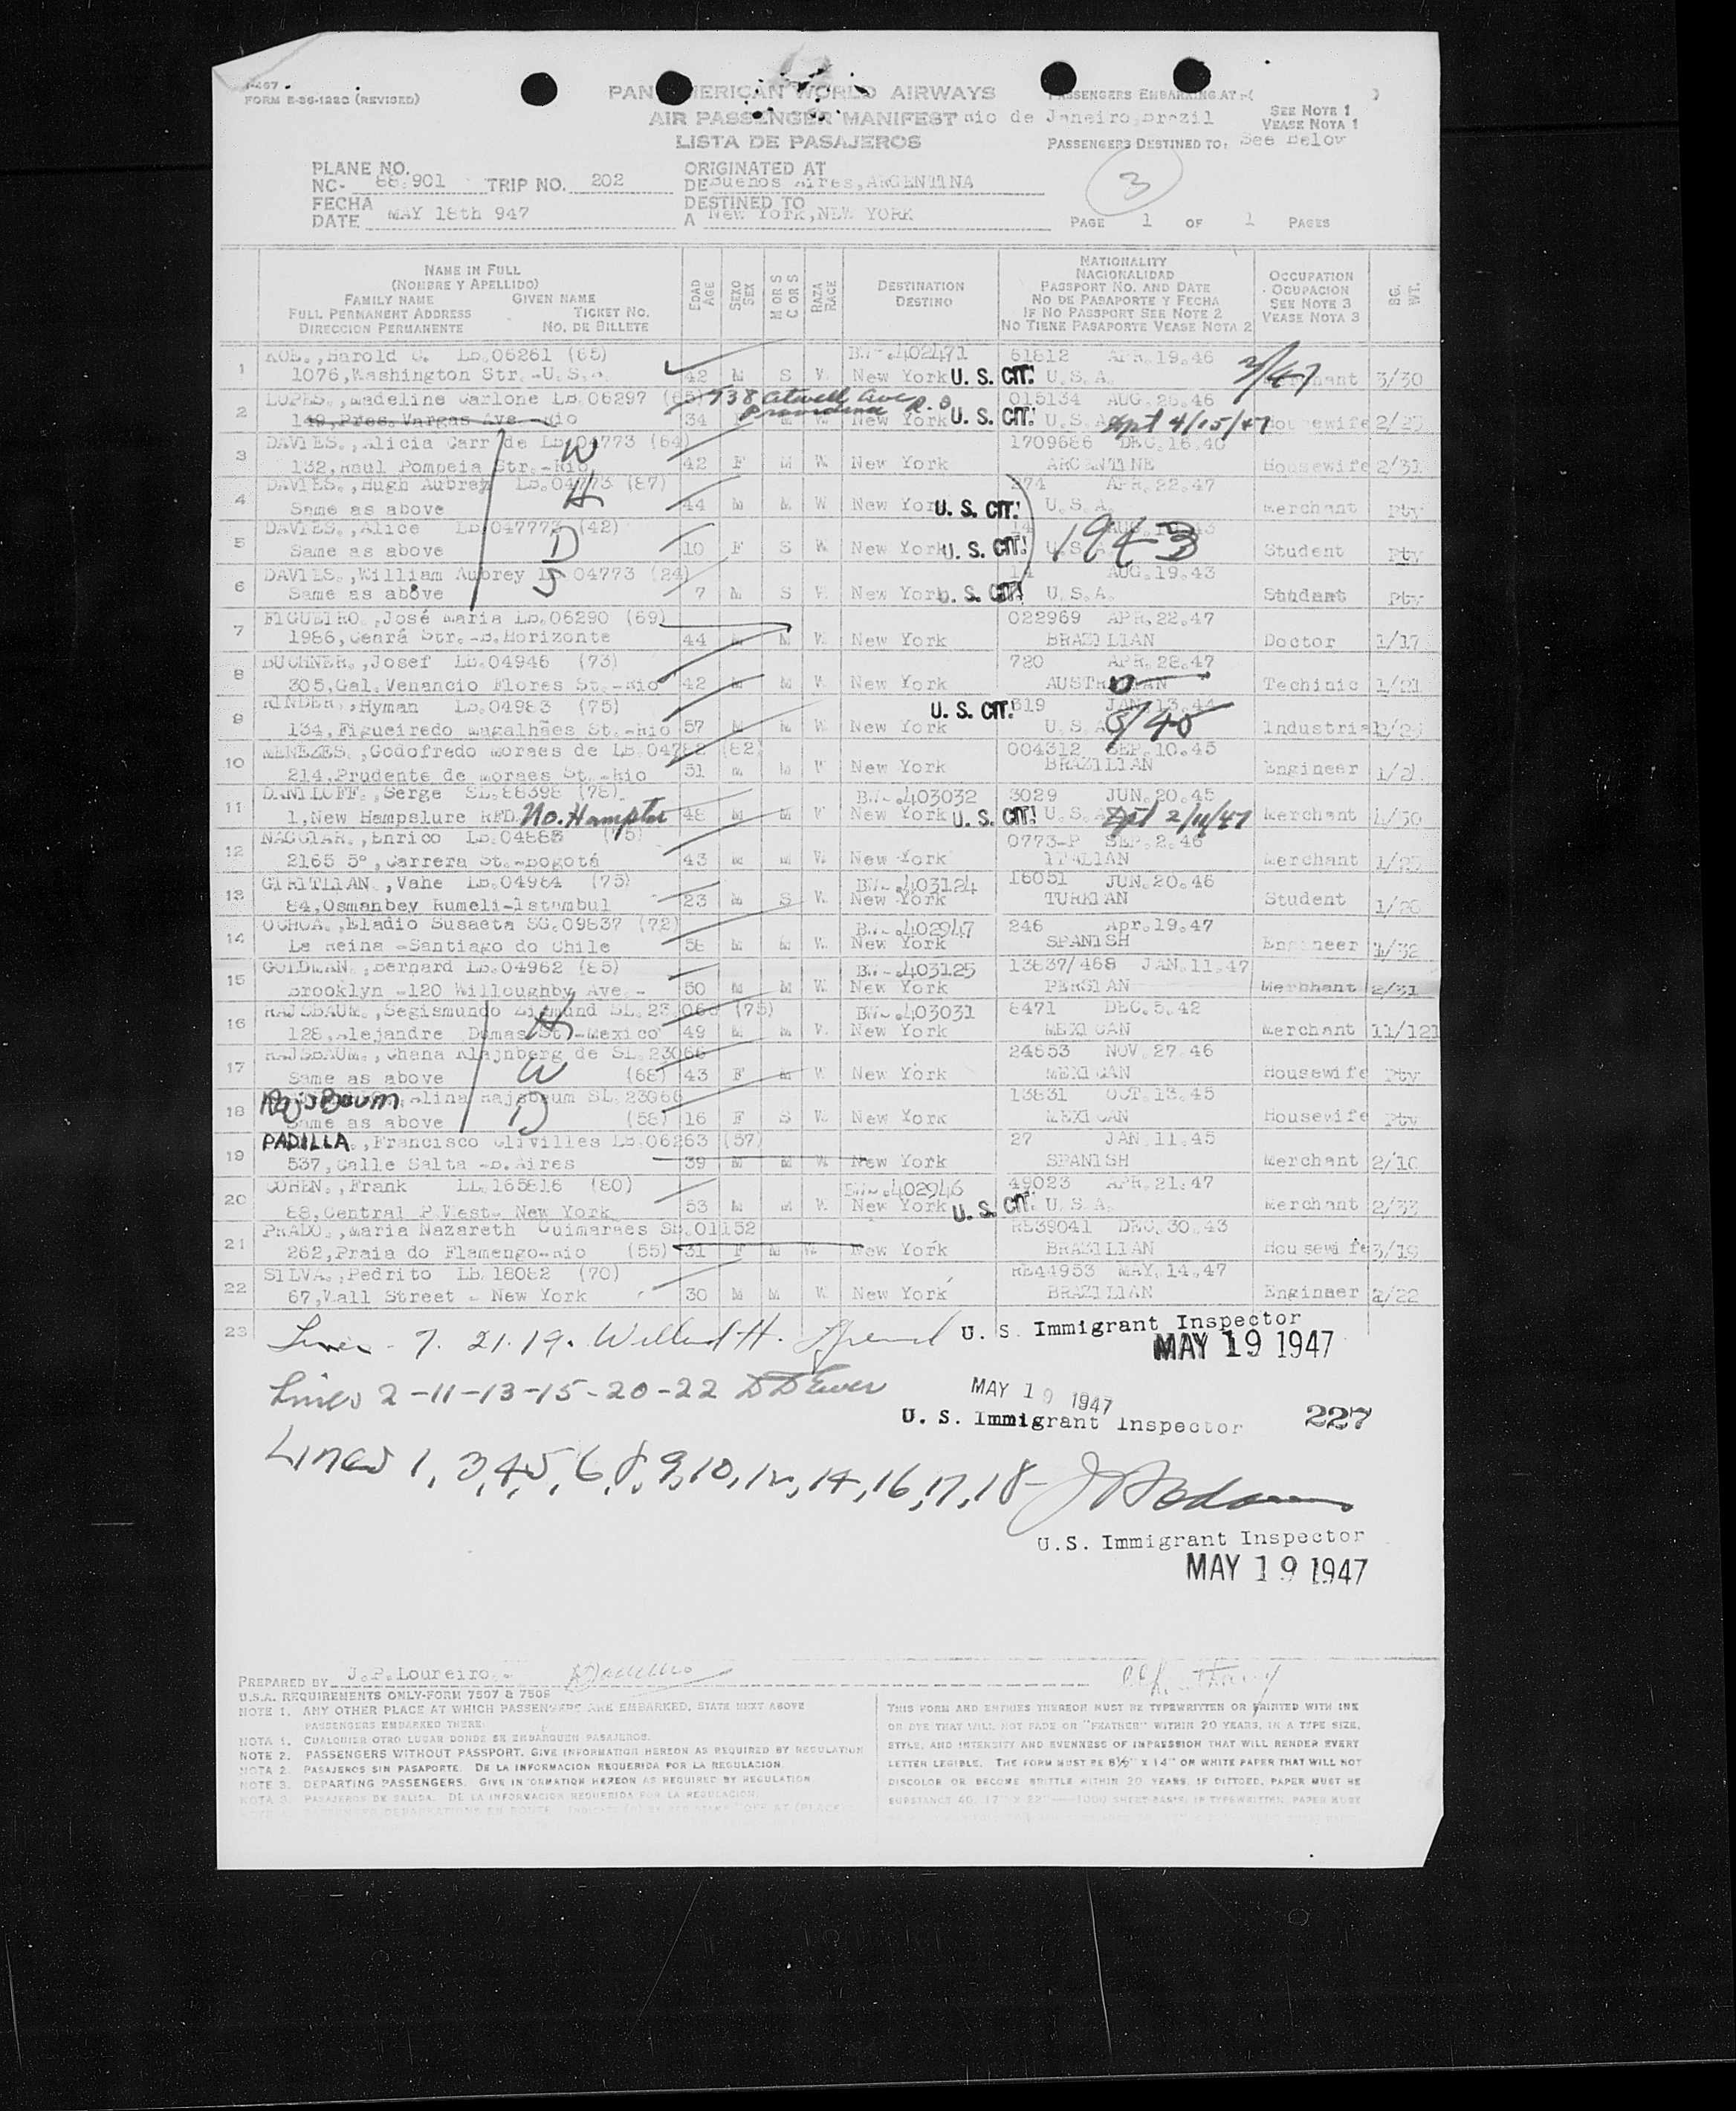 FORM E-36-1220 (REVISED)
PAN AMERICAN WORLD AIRWAYS
AIR PASSENGER MANIFEST
LISTA DE PASAJEROS
PASSENGERS EMBARKING AT
Rio de Janeiro, Brazil
SEE NOTE 1
VEASE NOTA 1
PASSENGERS DESTINED TO: See Below
3
PLANE NO.
NC- 88.901 TRIP NO. 202
ORIGINATED AT
DE Buenos Aires, ARGENTINA
FECHA
DATE MAY 18th 947
DESTINED TO
A New York, NEW YORK
PAGE 1 OF 1 PAGES
NAME IN FULL
(NOMBRE Y APELLIDO)
FAMILY NAME GIVEN NAME
FULL PERMANENT ADDRESS TICKET NO.
DIRECCION PERMANENTE NO. DE BILLETE
EDAD AGE
SEXO SEX
M OR S C OR S
RAZA RACE
DESTINATION
DESTINO
NATIONALITY
NACIONALIDAD
PASSPORT NO. AND DATE
NO DE PASAPORTE Y FECHA
IF NO PASSPORT SEE NOTE 2
NO TIENE PASAPORTE VEASE NOTA 2
OCCUPATION
OCUPACION
SEE NOTE 3
VEASE NOTA 3
BG. WT.
1 Harold LB.06261 (65) .402471 61812 APR.19.46 3/47
1076, Washington Str.-U.S.A. 42 M S W New York U. S. CIT. U.S.A. Merchant 3/30
2 LOPES., Madeline Carlone LB.06297 (65) 738 Atwell Ave Providence R.I. 015134 AUG.26.46
149, Pres. Vargas Ave -Rio 34 F M W New York U. S. CIT. U.S.A. Sept 4/15/47 Housewife
3 DAVIES., Alicia Carr de LB.04773 (64) W 1709686 DEC.16.40
132, Raul Pompeia Str.-Rio 42 F M W New York ARGENTINE Housewife 2/31
4 DAVIES., Hugh Aubrey LB.04773 (87) H 274 APR.22.47
Same as above 44 M M W New York U. S. CIT. U.S.A. Merchant Pty
5 DAVIES., Alice LB.047773 (42) D 14 AUG.19.43
Same as above 10 F S W New York U. S. CIT. U.S.A. 1943 Student Pty
6 DAVIES., William Aubrey LB.04773 (24) S 14 AUG.19.43
Same as above 7 M S W New York U. S. CIT. U.S.A. Student Pty
7 FIGUEIRO., José Maria LB.06290 (69) 022969 APR.22.47
1986, Ceará Str.-B.Horizonte 44 M M W New York BRAZILIAN Doctor 1/17
8 BUCHNER., Josef LB.04946 (73) 720 APR.28.47
305, Gal. Venancio Flores St.-Rio 42 M M W New York Techinic 1/21
9 Hyman LB.04983 (75) U. S. CIT. 319 JAN.13.44
134, Figueiredo Magalhães St.-Rio 57 M M W New York U.S.A. 5/45 Industrial
10 MENEZES., Godofredo Moraes de LB.04782 (82) 004312 SEP.10.45
214, Prudente de Moraes St.-Rio 51 M M W New York BRAZILIAN Engineer 1/21
11 DANILOFF., Serge SL.88398 (78) .403032 3029 JUN.20.45
1, New Hampslure RFD. No. Hampton 48 M M W New York U. S. CIT. U.S.A. Merchant
12 Enrico LB.04888 (75) 0773-P SEP.2.46
2165 5º, Carrera St.-Bogotá 43 M M W New York ITALIAN Merchant
13 Vahe LB.04984 (75) .403124 16051 JUN.20.46
84, Osmanbey Rumeli-Istambul 23 M S W New York TURKIAN Student 1/20
14 OCHOA., Eladio Susaeta SG.09837 (72) .402947 246 Apr.19.47
La Reina -Santiago do Chile 58 M M W New York SPANISH Engineer 1/32
15 GOLDMAN., Bernard LB.04962 (85) .403125 13637/468 JAN.11.47
Brooklyn -120 Willoughby Ave.- 50 M M W New York PERSIAN Merchant 2/31
16 RAJSBAUM., Segismundo Zigmund SL.23.066 (75) H .403031 8471 DEC.5.42
128, Alejandre Dumas St.-Mexico 49 M M W New York MEXICAN Merchant 11/121
17 RAJSBAUM., Chana Klajnberg de SL.23066 24853 NOV.27.46
Same as above W (68) 43 F M W New York MEXICAN Housewife Pty
18 RAJSBAUM Alina Rajsbaum SL.23066 13831 OCT.13.45
Same as above D (58) 16 F S W New York MEXICAN Housewife Pty
19 PADILLA., Francisco Olivilles LB.06263 (57) 27 JAN.11.45
537, Calle Salta -B.Aires 39 M M W New York SPANISH Merchant 2/10
20 COHEN., Frank LL.165816 (80) .402946 49023 APR.21.47
88, Central P.West- New York 53 M M W New York U. S. CIT. U.S.A. Merchant 2/33
21 PRADO., Maria Nazareth Guimaraes SB.01152 RE39041 DEC.30.43
262, Praia do Flamengo-Rio (55) 31 F M W New York BRAZILIAN Housewife 3/19
22 SILVA., Pedrito LB.18082 (70) RE44953 MAY.14.47
67, Wall Street - New York 30 M M W New York BRAZILIAN Engineer 2/22
23 Lines - 7. 21. 19. Willard H. U. S. Immigrant Inspector
MAY 19 1947
Lines 2-11-13-15-20-22 MAY 19 1947
U. S. Immigrant Inspector 227
Lines 1, 3, 4, 5, 6, 8, 9, 10, 12, 14, 16, 17, 18-
U.S. Immigrant Inspector
MAY 19 1947
PREPARED BY J.P.Loureiro.-
U.S.A. REQUIREMENTS ONLY-FORM 7507 & 7509
NOTE 1. ANY OTHER PLACE AT WHICH PASSENGERS ARE EMBARKED, STATE NEXT ABOVE
PASSENGERS EMBARKED THERE.
NOTA 1. CUALQUIER OTRO LUGAR DONDE SE EMBARQUEN PASAJEROS.
NOTE 2. PASSENGERS WITHOUT PASSPORT. GIVE INFORMATION HEREON AS REQUIRED BY REGULATION
NOTA 2. PASAJEROS SIN PASAPORTE. DE LA INFORMACION REQUERIDA POR LA REGULACION.
NOTE 3. DEPARTING PASSENGERS. GIVE INFORMATION HEREON AS REQUIRED BY REGULATION
NOTA 3. PASAJEROS DE SALIDA. DE LA INFORMACION REQUERIDA POR LA REGULACION.
THIS FORM AND ENTRIES THEREON MUST BE TYPEWRITTEN OR PRINTED WITH INK
OR DYE THAT WILL NOT FADE OR "FEATHER" WITHIN 20 YEARS, IN A TYPE SIZE,
STYLE, AND INTENSITY AND EVENNESS OF IMPRESSION THAT WILL RENDER EVERY
LETTER LEGIBLE. THE FORM MUST BE 8½" X 14" ON WHITE PAPER THAT WILL NOT
DISCOLOR OR BECOME BRITTLE WITHIN 20 YEARS. IF DITTOED, PAPER MUST BE
SUBSTANCE 40, 17" X 22"—1000 SHEET BASIS; IF TYPEWRITTEN, PAPER MUST